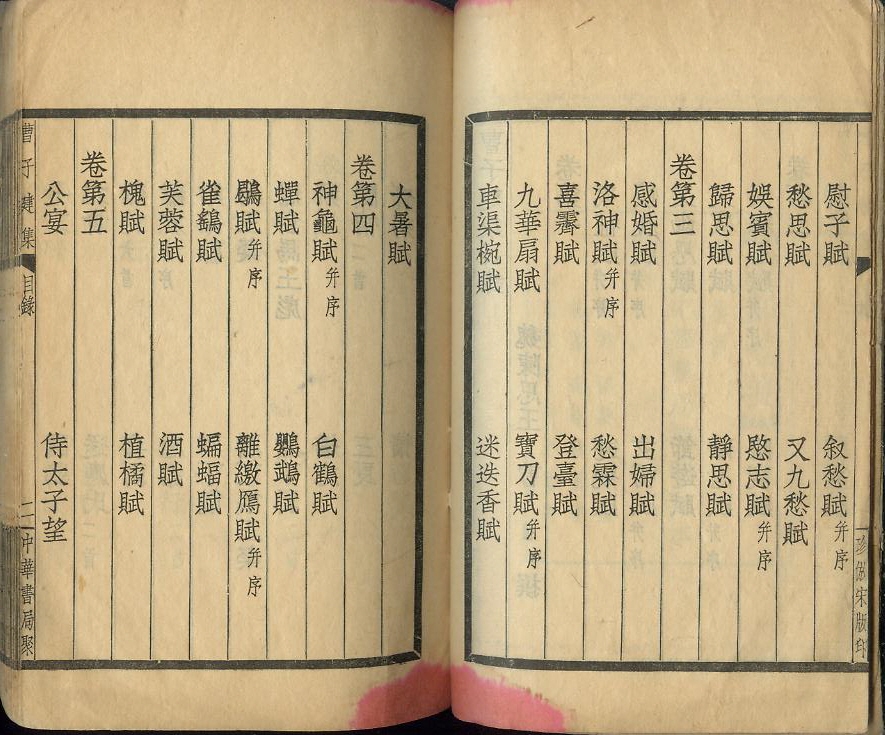 慰子賦 叙愁賦并序
愁思賦 又九愁賦
娛賓賦 愍志賦并序
歸思賦 靜思賦
卷第三
感婚賦 出婦賦
洛神賦并序 愁霖賦
喜霽賦 登臺賦
九華扇賦 寶刀賦并序
車渠椀賦 迷迭香賦
珍倣宋版印
大暑賦
卷第四
神龜賦并序 白鶴賦
蟬賦 鸚鵡賦
鶡賦并序 離繳鴈賦并序
雀鷂賦 蝙蝠賦
芙蓉賦 酒賦
槐賦 植橘賦
卷第五
公宴 侍太子望
曹子建集 目錄 二 中華書局聚